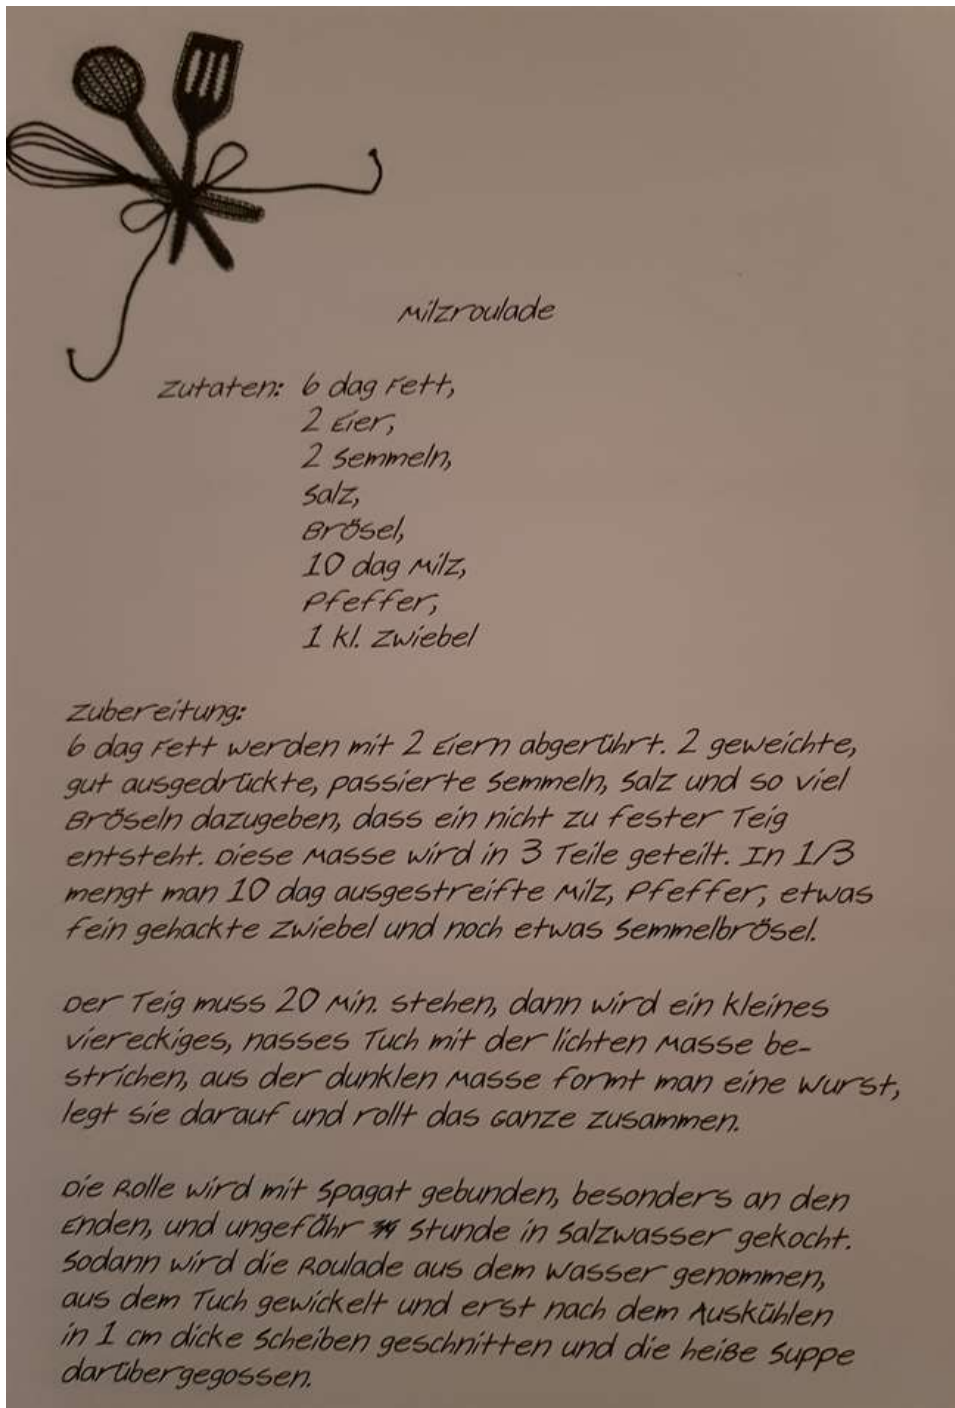 Milzroulade
Zutaten: 6 dag Fett,
2 Eier,
2 Semmeln,
Salz,
Brösel,
10 dag Milz,
Pfeffer,
1 kl. Zwiebel
Zubereitung:
6 dag Fett werden mit 2 Eiern abgerührt. 2 geweichte,
gut ausgedrückte, passierte Semmeln, Salz und so viel
Bröseln dazugeben, dass ein nicht zu fester Teig
entsteht. Diese Masse wird in 3 Teile geteilt. In 1/3
mengt man 10 dag ausgestreifte Milz, Pfeffer, etwas
fein gehackte Zwiebel und noch etwas Semmelbrösel.
Der Teig muss 20 Min. stehen, dann wird ein kleines
viereckiges, nasses Tuch mit der lichten Masse be-
strichen, aus der dunklen Masse formt man eine Wurst,
legt sie darauf und rollt das Ganze zusammen.
Die Rolle wird mit Spagat gebunden, besonders an den
Enden, und ungefähr ¾ Stunde in Salzwasser gekocht.
Sodann wird die Roulade aus dem Wasser genommen,
aus dem Tuch gewickelt und erst nach dem Auskühlen
in 1 cm dicke Scheiben geschnitten und die heiße Suppe
darübergegossen.